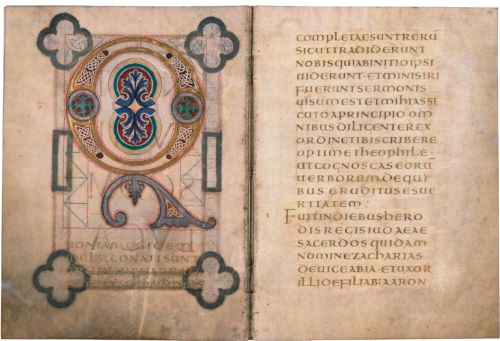 Q
ONIAMQUIDEM
MULTI CONATI SUNT
COMPLETAESUNTRERŪ
SICUTTRADIDERUNT
NOBISQUIABINITIOIPSI
UIDERUNT·ETMINISTRI
FUERUNTSERMONIS
UISUMESTETMIHIASSE
CUTOAPRINCIPIO OM
NIBUSDILIGENTEREX
ORDINETIBISCRIBERE
OPTIMETHEOPHILE·
UTCOGNOSCASEORŪ
UERBORUM·DEQUI
BUSERUDITUSESUE
RITATEM·
FUITINDIEBUSHERO
DISREGISIUDAEAE
SACERDOSQUIDAM
NOMINEZACHARIAS
DEUICEABIA·ETUXOR
ILLIDEFILIAB·AARON